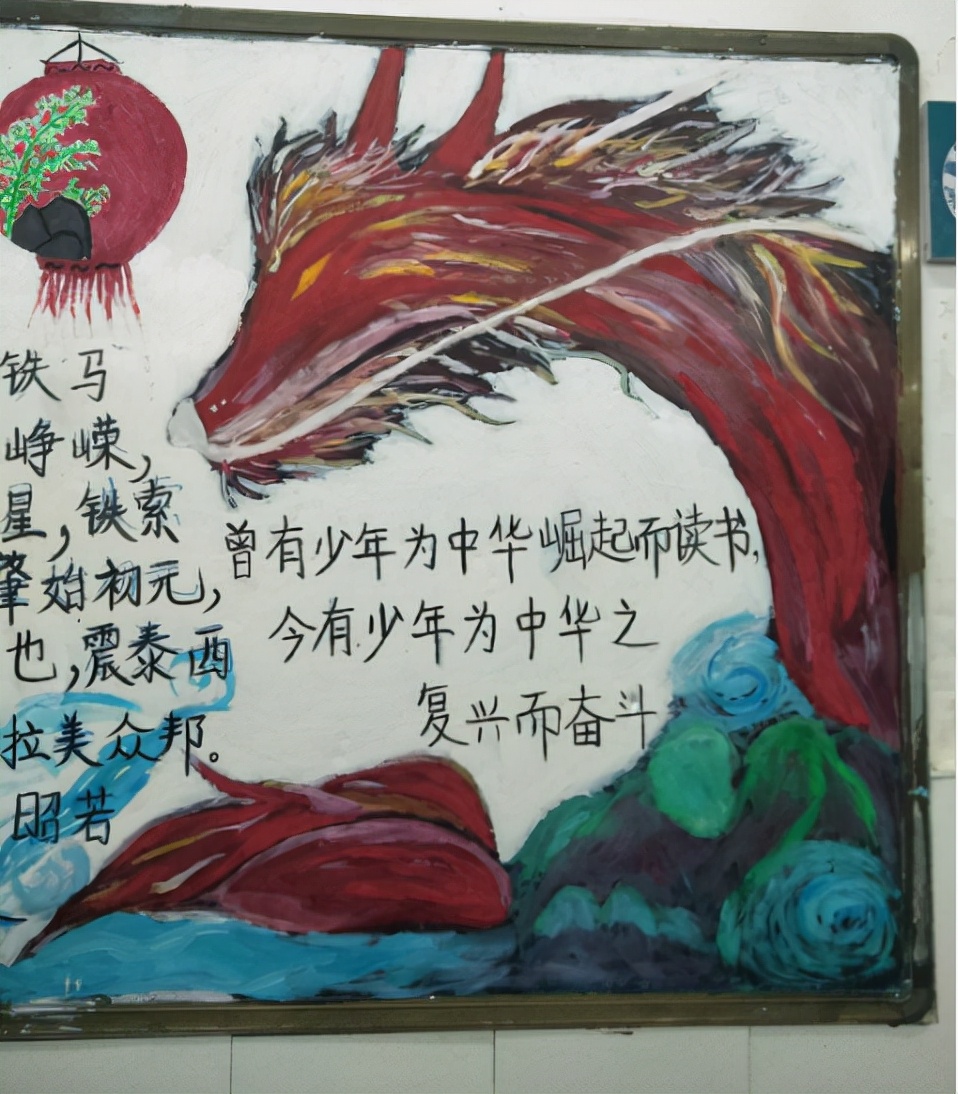 铁马
峥嵘，
星，铁索
肇始初元，
也，震泰西
拉美众邦。
昭若
曾有少年为中华崛起而读书，
今有少年为中华之
复兴而奋斗